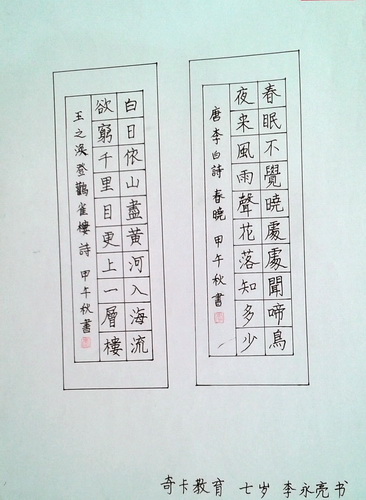 春眠不覺曉處處聞啼鳥
夜來風雨聲花落知多少
唐李白詩 春曉 甲午秋書
白日依山盡黃河入海流
欲窮千里目更上一層樓
玉之渙登鸛雀樓詩 甲午秋書
奇卡教育 七岁 李永亮书